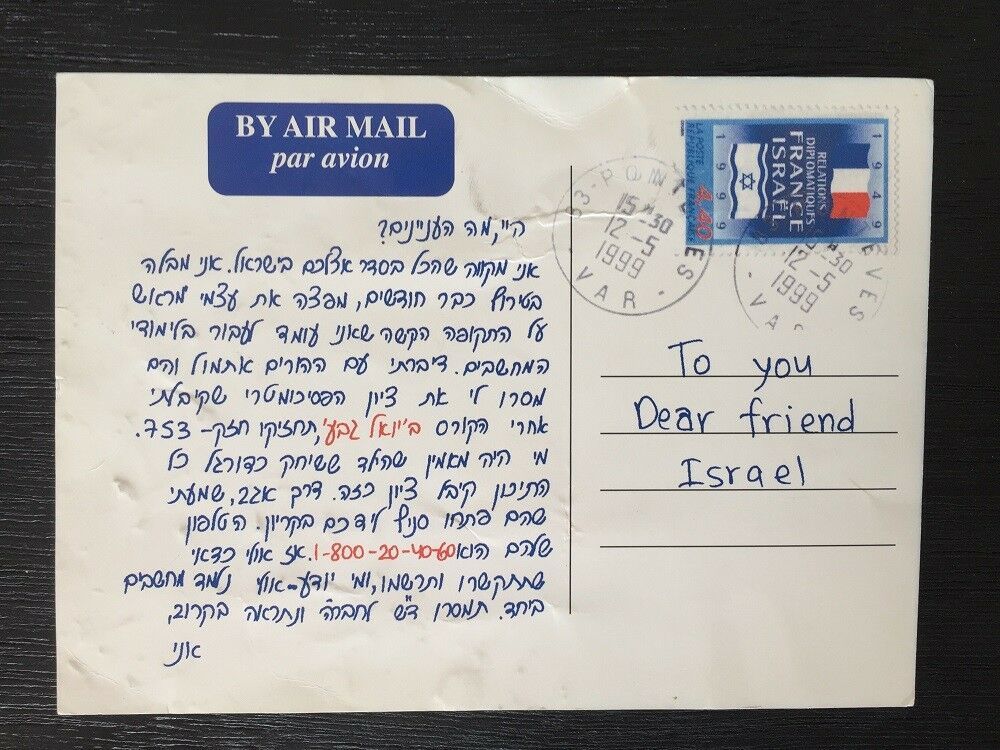 BY AIR MAIL
par avion
היי, מה העניינים?
אני מקווה שהכל בסדר אצלכם בישראל. אני מבלה
בטירוף כבר חודשים, מפצה את עצמי מראש
על התקופה הקשה שאני עומד לעבור בלימודי
המחשבים. דיברתי עם ההורים אתמול והם
מסרו לי את ציון הפסיכומטרי שקיבלתי
אחרי הקורס ב"יואל גבע", תחזיקו חזק- 753.
מי היה מאמין שהילד ששיחק כדורגל כל
התיכון קיבל ציון כזה. דרך אגב, שמעתי
שהם פתחו סניף לידכם בקריון. הטלפון
שלהם הוא 1-800-20-40-60. אז אולי כדאי
שתתקשרו ותרשמו, ומי יודע-אולי נלמד מחשבים
ביחד. תמסרו ד"ש לחבר'ה ונתראה בקרוב,
אוני
1949
1999
RELATIONS
DIPLOMATIQUES
FRANCE
ISRAËL
4,40
LA POSTE
RÉPUBLIQUE FRANÇAISE
15 H 30
12-5
1999
VAR
30
12-5
1999
To you
Dear friend
Israel